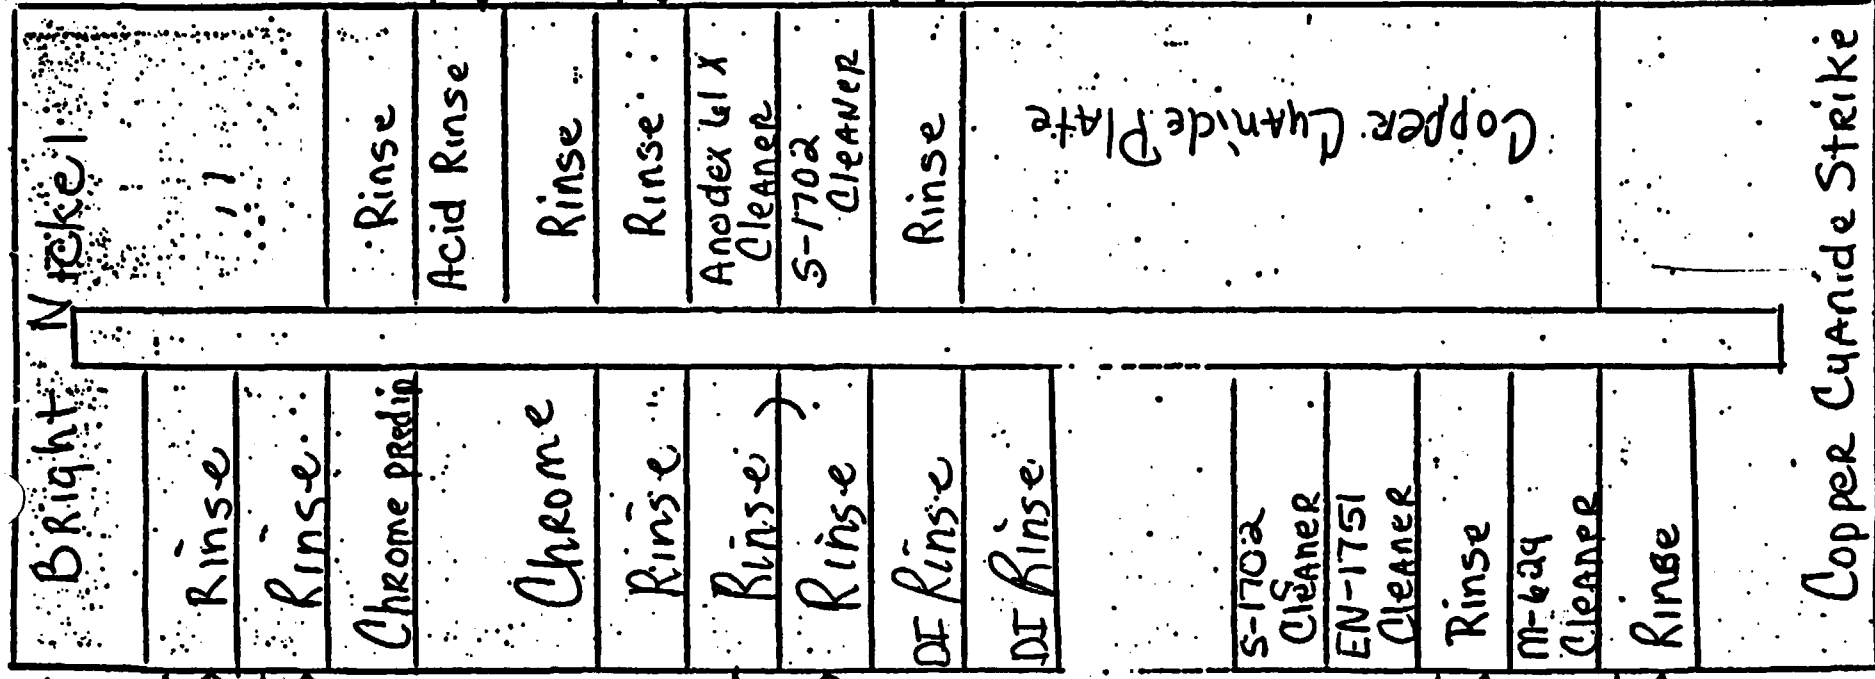 Bright Nickel
Rinse
Acid Rinse
Rinse
Rinse
Anodex 61 X
Cleaner
S-1702
Cleaner
Rinse
Copper Cyanide Plate
Copper Cyanide Strike
Rinse
Rinse
Chrome Predip
Chrome
Rinse
Rinse
Rinse
DI Rinse
DI Rinse
S-1702
Cleaner
EN-1751
Cleaner
Rinse
M-629
Cleaner
Rinse